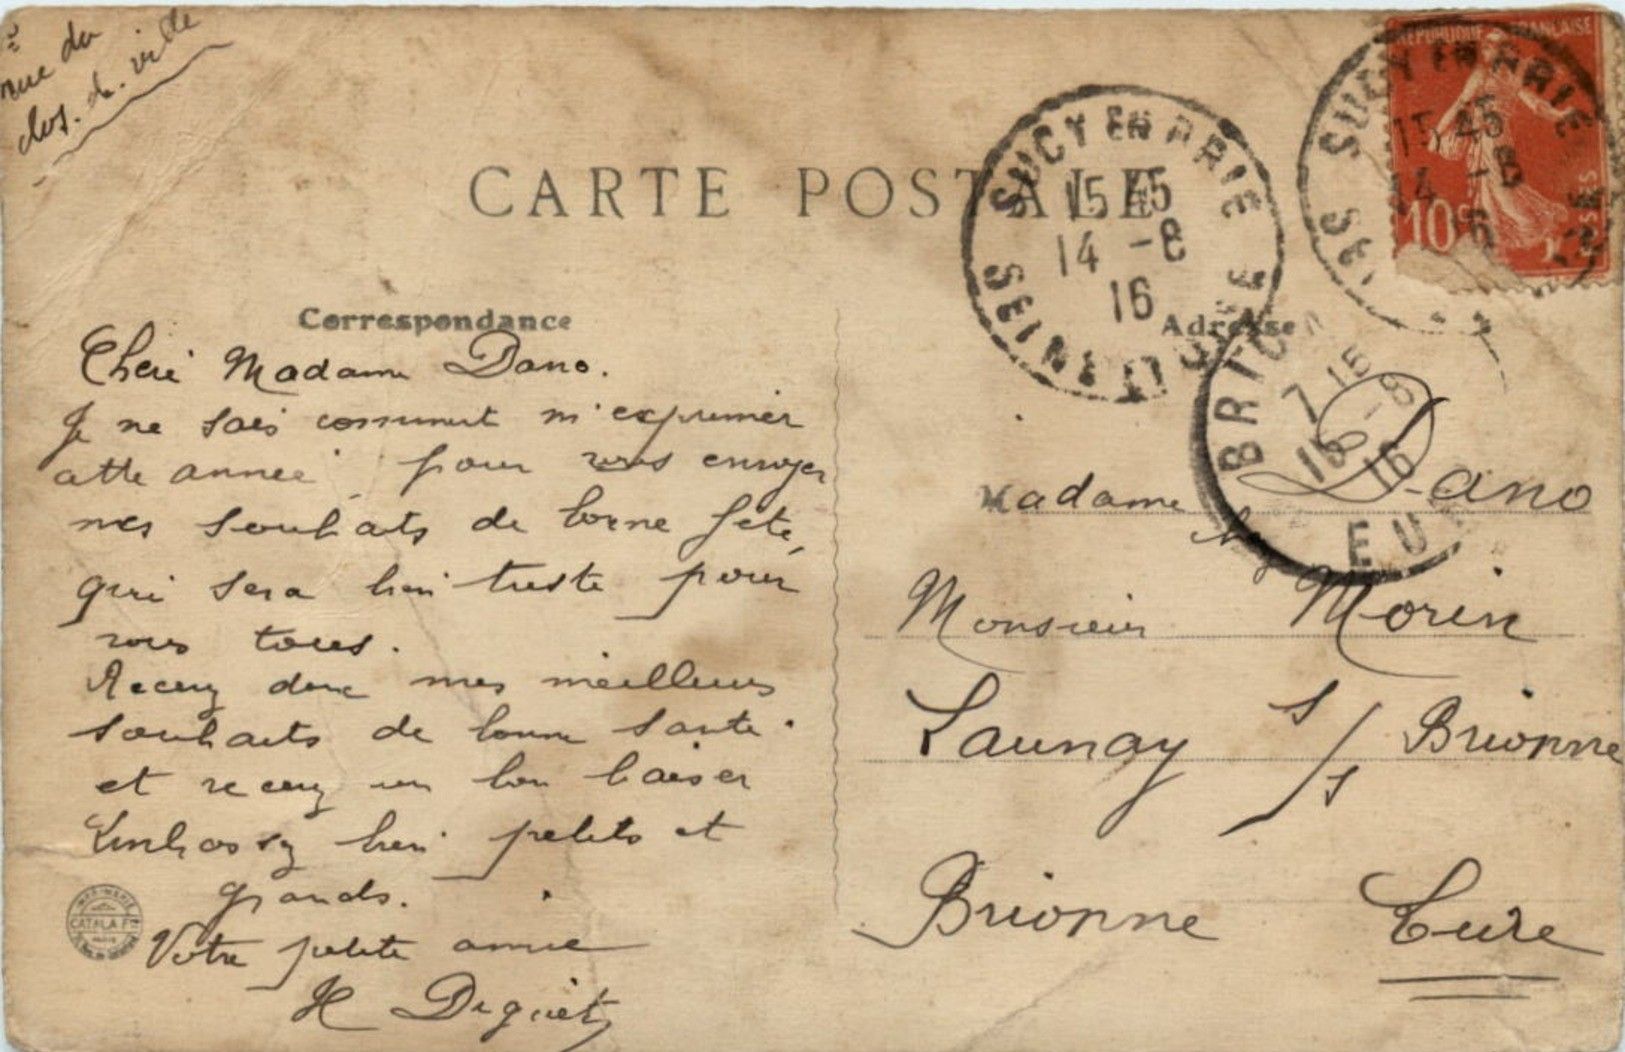 rue du
clos. de. ville
CARTE POSTALE
RÉPUBLIQUE FRANÇAISE
10c
POSTES
SUCY EN BRIE
15 45
14 -8
16
SEINE ET OISE
SUCY EN BRIE
15 45
14 -8
16
Correspondance
Adresse
BRIONNE
7 15
15 -8
16
EURE
Cheré Madame Dano.
Je ne sais comment m'exprimer
cette année pour vous envoyer
mes souhaits de bonne fete,
qui sera bien triste pour
vous tous.
Recevez donc mes meilleurs
souhaits de bonne santé.
et recevez un bon baiser
Embrassez bien petits et
grands.
Votre petite amie
H Deguet
Madame Dano
chez
Monsieur Morin
Launay s/s Brionne
Brionne Eure
IMPRIMERIE
CATALA Frs
PARIS